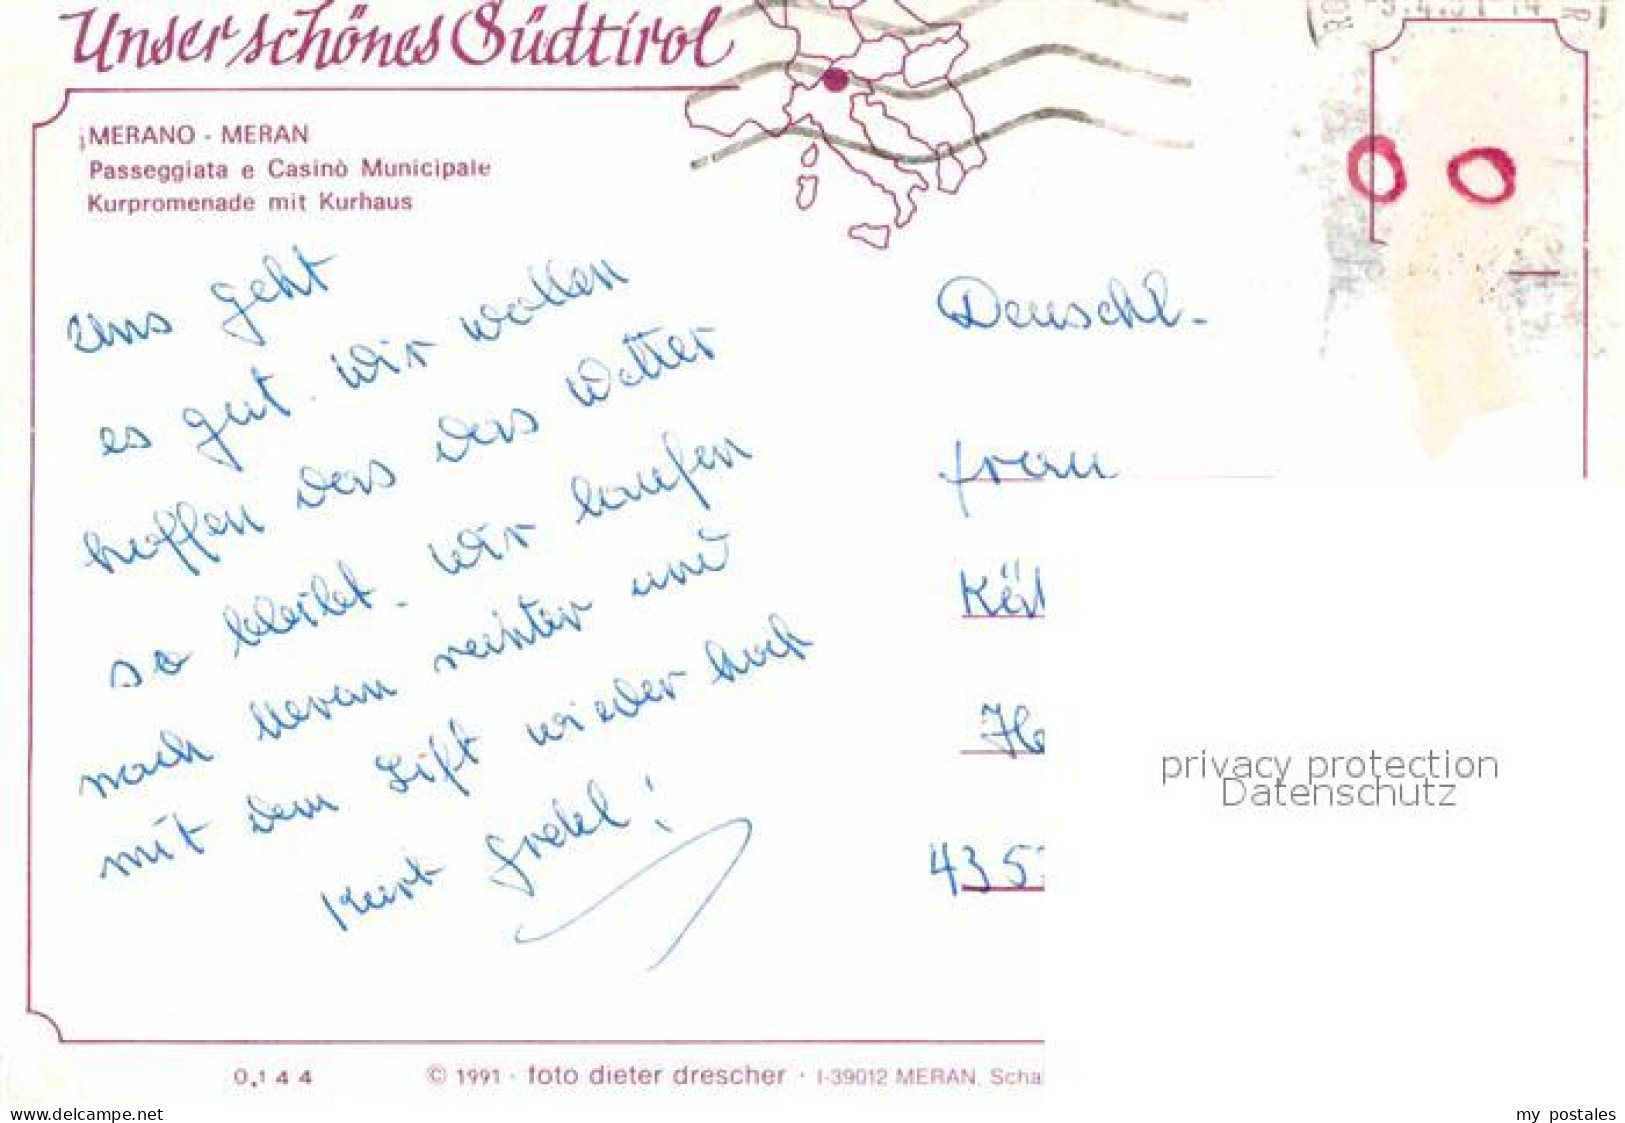 Unser schönes Südtirol
MERANO - MERAN
Passeggiata e Casinò Municipale
Kurpromenade mit Kurhaus
uns geht
es gut. wir wollen
hoffen das das Wetter
so bleibt. wir laufen
nach Meran runter und
mit dem Lift wieder hoch
Kurt Gretel!
Deuschl.
Frau
435
privacy protection
Datenschutz
0,144
© 1991 · foto dieter drescher · I-39012 MERAN, Scha
www.delcampe.net
my_postales